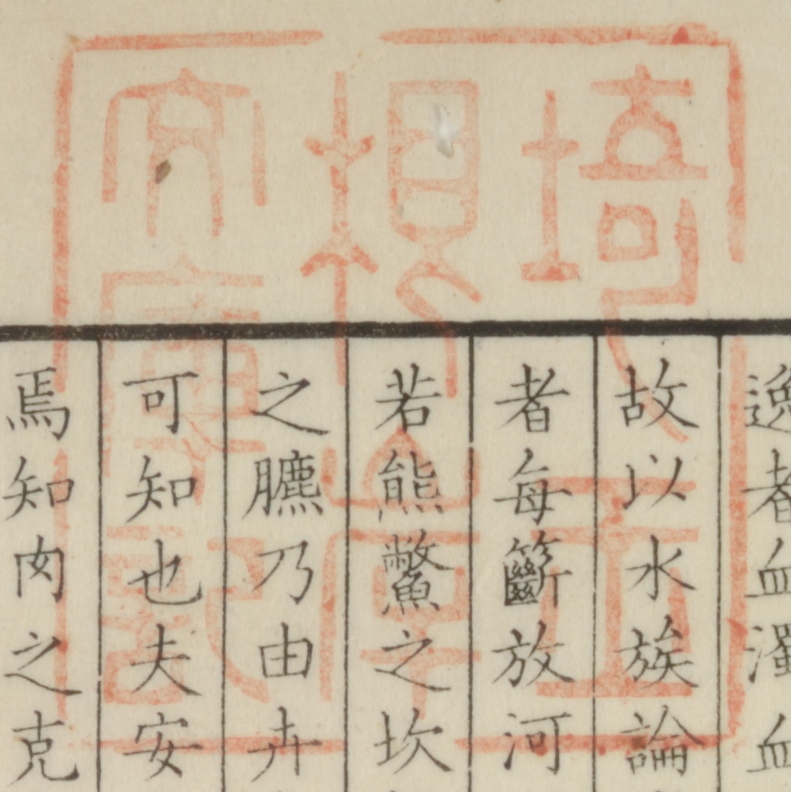 逸者血濁血
故以水族論
者每籪放河
若熊鱉之坎
之臕乃由卉
可知也夫安
焉知肉之克